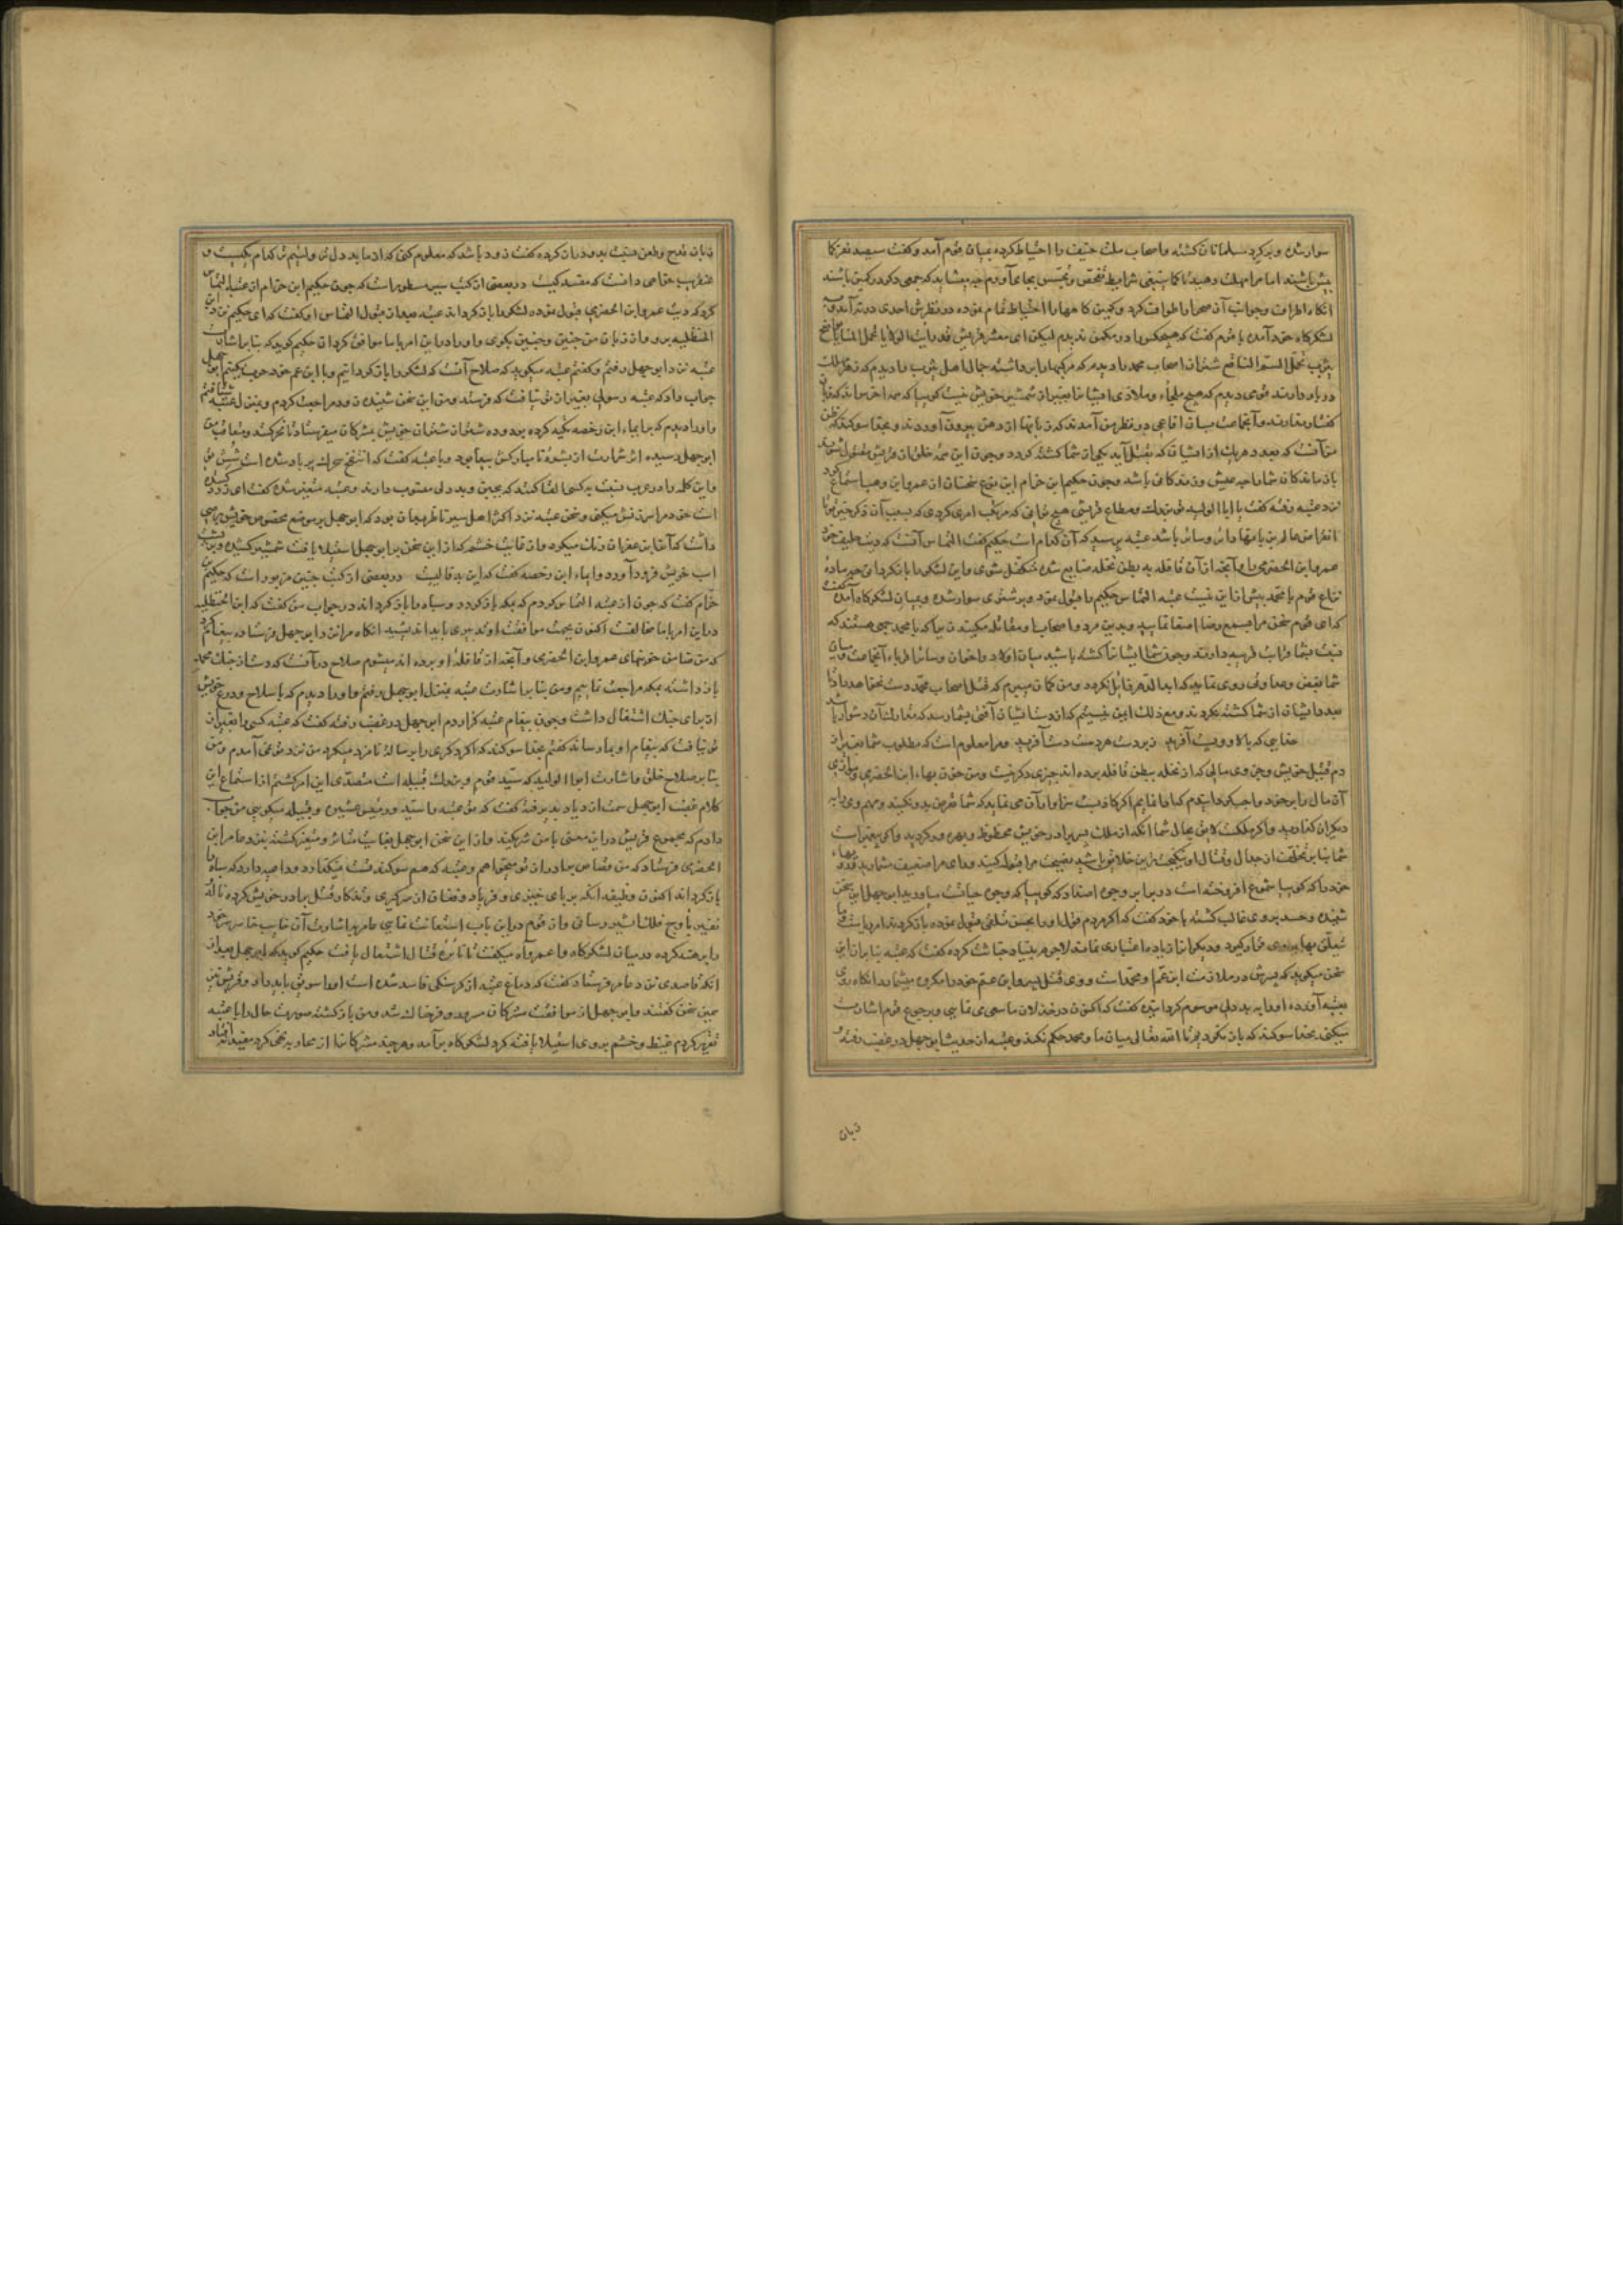 سوار شده و بر کرد مسلمانان کشته و اصحاب ملت حنیف را احتیاط کرده بمیان قوم آمد و کفت سیصد نفر یا
بیش باشند اما مرا مهلت دهید تا کما ینبغی شرایط تفحص و تجسس بجای آورم چه میشاید که جمعی دکر در کمین باشند
انکاه اطراف و جوانب آن صحرا را طواف کرد و کمین کاهها را احتیاط تمام نموده در نظرش احدی در نیامد و به
لشکرکاه خود آمده با قوم کفت که هیچکس را در مکمن ندیدم لیکن ای معشر قریش قد رایت الولایا تحمل المنایا نواضح
یثرب تحمل السم الناقع شتران اصحاب محمد را دیدم که مرکها را برداشته جمال اهل یثرب را دیدم که زهر هلاک
در بار دارند قومی دیدم که هیچ ملجاء و ملاذی ایشان را بغیر از شمشیر خویش نیست کوییا که همه اخرس اند که زبان
کفتار ندارند و آنجماعت بسان افاعی در نظر من آمدند که زبانها از دهن بیرون آورند و بخدا سوکند که ظن
من آنست که بعدد هریک از ایشان که بقتل آید یکی از شما کشته کردد و چون این همه خلق از قریش مقتول شوند
بازماندکان شما را چه عیش و زندکانی باشد و چون حکیم ابن حزام این نوع سخنان از عمرو ابن وهب استماع کرد
نزد عتبه رفته کفت یا ابا الولید تو بزرک و مطاع قریشی هیچ توانی که مرتکب امری کردی که بسبب آن ذکر خیر تو تا
انقراض عالم بر زبانها دایر و سایر باشد عتبه پرسید که آن کدام است حکیم کفت التماس آنست که دیت حلیف خود
عمرو ابن الحضرمی را و آنچه از آن قافله به بطن نخله ضایع شده متکفل شوی و این لشکر را بازکردانی چه ماده
نزاع قوم با محمد بیش ازین نیست عتبه التماس حکیم را قبول نمود و بر شتری سوار شده و بمیان لشکرکاه آمده کفت
که ای قوم سخن مرا بسمع رضا اصغا نمایید و بدین مرد و اصحاب او مقاتله مکنید زیرا که با محمد جمعی هستند که
نسبت بشما قرابت قریبه دارند و چون شما ایشان را کشته باشید میان اولاد و اخوان و سایر اقرباء آنجماعت و میان
شما بغض و عداوتی روی نماید که ابد الدهر زایل نکردد و من کمان میبرم که قتل اصحاب محمد دست نخواهد داد تا
بعدد ایشان از شما کشته نکردند و مع ذلک ایمن نیستیم که از دست ایشان آفتی بشما رسد که مقاومت آن دشوار باشد
خدایی که بالا و پست آفرید زبردست هر دست دست آفرید و مرا معلوم است که مطلوب شما بغیر از
دم قتیل خویش و چیزی مالی که از نخله ببطن قافله برده اند چیزی دکر نیست و من خون بهاء ابن الحضرمی و تاوان
آن مال را بر خود واجب کردانیدم که ادا نمایم اکر کاذب است سزاوار آن می نماید که شما شر من بدو نکنید و مهم وی را به
دیکران کذارید و اکر ملک است لایق بحال شما آنکه از ملک برادر خویش محظوظ و بهره ور کردید و اکر پیغمبر است
شما بنابر تخلف از جدال و قتال او نیکبخت ترین خلایق باشید نصیحت مرا قبول کنید و رای مرا ضعیف مشمارید
خود را که کوییا شموع افروخته است در برابر وجوه اصنام که کوییا که وجوه حیات سازید ابوجهل این سخن
شنیده و حسد بر وی غالب کشته با خود کفت که اکر مردم قول او را بحسن تلقی قبول نموده باز کردند امر ریاست
تعلق بوی کیرد و دیکر انرا زیاده اعتباری نماند لاجرم بنیاد خباثت کرده کفت که عتبه بنابر آن این
سخن میکوید که پسرش در ملازمت ابن عم او محمد است و وی قتل پسر و ابن عم خود را مکروه میشمارد انکاه روی
بعتبه آورده او را به بددلی موسوم کردانیده کفت که اکنون در خذلان ما سعی می نمایی و برجوع قوم اشارت
میکنی بخدا سوکند که باز نکردیم تا الله تعالی میان ما و محمد حکم نکند و عتبه از حدیث ابوجهل در غضب رفته و
زبان
زبان بقدح و طعن عتبه بدو دراز کرده کفت زود باشد که معلوم کنی که از ما بددل تر و لئیم تر کدام یکیست و
عنقریب خواهی دانست که مفسد کیست و در بعضی از کتب سیر مسطور است که چون حکیم ابن حزام از عتبه التماس
کرد که دیت عمرو ابن الحضرمی قبول نموده لشکر را بازکرداند عتبه بعد از قبول التماس او کفت که ای حکیم نزد ابن
الحنظلیه برو و از زبان من چنین و چنین بکوی و او را در این امر با ما موافق کردان حکیم کوید که بنابر اشارت
عتبه نزد ابوجهل رفتم و کفتم عتبه میکوید که صلاح آنست که لشکر را بازکردانیم و با ابن عم خود حرب نکنیم ابوجهل
جواب داد که عتبه رسولی بغیر از تو نیافت که فرستد و من این سخن شنیده زود مراجعت کردم و بمنزل عتبه شتافتم
و او را دیدم که بر ایماء ابن رخصه تکیه کرده بود و ده شتر از شتران خویش بمشرکان میفرستاد تا نحر کنند و متعاقب من
ابوجهل رسیده اثر شرارت از بشره نامبارکش پیدا بود و با عتبه کفت که انتفخ سحرک پر باد شده است شش تو
و این کلمه را در عرب نسبت به کسی القا کنند که بجبن و بددلی منسوب دارند و عتبه متغیر شده کفت ای زرد کننده
است خود مرا سرزنش میکنی و سخن عتبه نزد اکثر اهل سیر ناظر بهمان بود که ابوجهل بر موضع مخصوص خویش برصی
داشت که آنرا بزعفران رنک میکرد و از غایت خشم که از این سخن بر ابوجهل استیلا یافت شمشیر کشیده و بر پشت
اسب خویش فرود آورد و ایماء ابن رخصه کفت که این بد فالیست و در بعضی از کتب چنین مزبور است که حکیم بن
حزام کفت که چون از عتبه التماس کردم که بمکه بازکردد و سپاه را بازکرداند در جواب من کفت که ابن الحنظلیه
در این امر با ما مخالفت اکنون بجهت موافقت او تدبیری باید اندیشید انکاه مرا نزد ابوجهل فرستاده پیغام کرد
که من ضامن خونبهای عمرو ابن الحضرمی و آنچه از قافله او برده اند میشوم صلاح در آنست که دست از جنک محمد
بازداشته بمکه مراجعت نماییم و من بنابر اشارت عتبه بمنزل ابوجهل رفتم و او را دیدم که با سلاح و درع خویش
از برای جنک اشتغال داشت و چون پیغام عتبه کزاردم ابوجهل در غضب رفته کفت که عتبه کسی را بغیر از
تو نیافت که پیغام او بما رساند کفتم بخدا سوکند که اکر دکری را برسالت نامزد میکرد من نزد تو نمی آمدم و من
بنابر صلاح خلق و اشارت ابوالولید که سید قوم و بزرک قبیله است متصدی این امر کشتم از استماع این
کلام غضب ابوجهل سمت ازدیاد پذیرفته کفت که تو عتبه را سید و رئیس عشیره و قبیله میکویی من جواب
دادم که مجموع قریش در این معنی با من شریکند و از این سخن ابوجهل بغایت متاثر و متغیر کشته نزد عامر ابن
الحضرمی فرستاد که من قصاص برادر از تو میخواهم و عتبه که هم سوکند تست میکذارد و داعیه دارد که سپاه را
بازکرداند اکنون وظیفه آنکه بر پای خیزی و فریاد و فغان از سر کیری و تذکار قتل برادر خویش کرده ناله
نفیر باوج فلک اثیر رسانی و از قوم در این باب استعانت نمایی عامر باشارت آن خایب خاسر سر خود
را برهنه کرده در میان لشکرکاه وا عمرواه میکفت تا نایره قتال اشتعال یافت حکیم کوید که ابوجهل بعد از
آنکه قاصدی نزد عامر فرستاد کفت که دماغ عتبه از کرسنکی فاسد شده است او را سویق باید داد و قریش نیز
همین سخن کفتند و ابوجهل از موافقت مشرکان مسرور و فرحناک شد و من بازکشته صورت حال را با عتبه
تقریر کردم غیظ و خشم بر وی استیلا یافته کرد لشکرکاه برآمد و هرچند مشرکان را از محاربه نهی کرد مفید نیفتاد